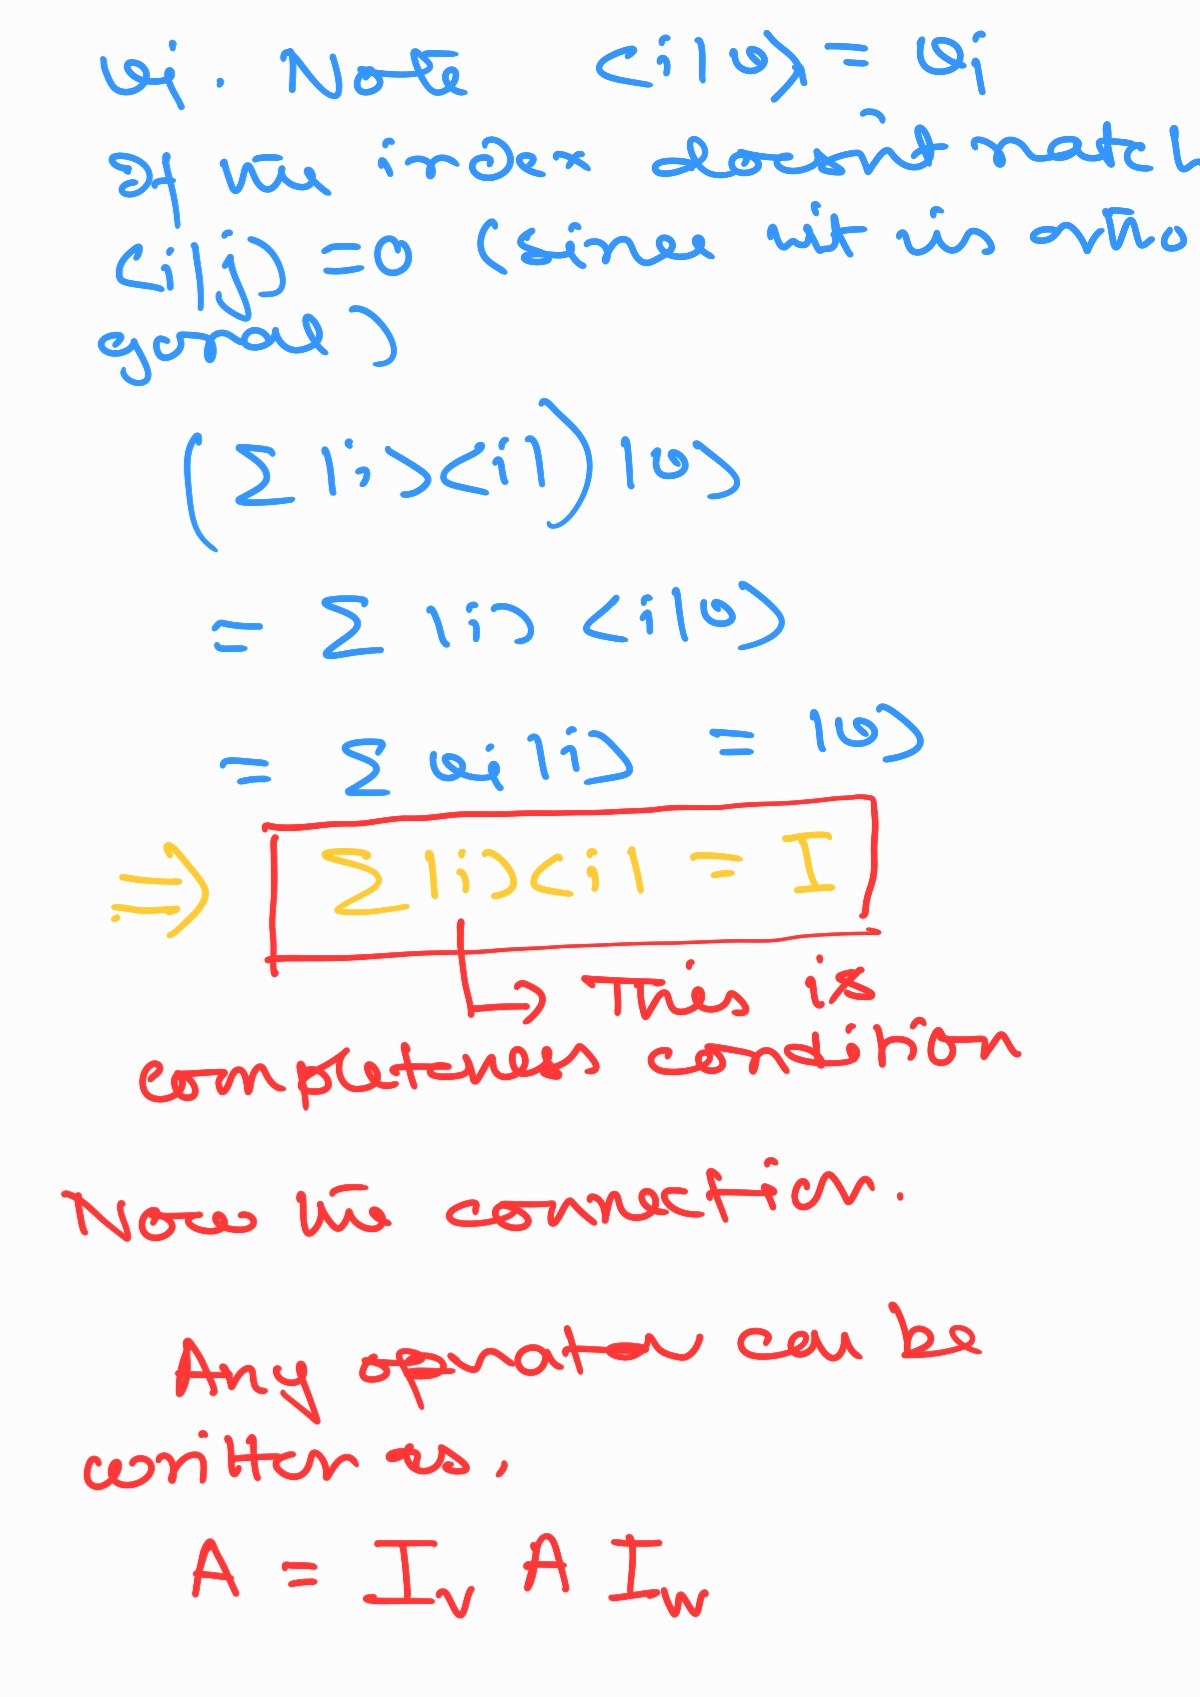 vi. Note <i|v> = vi
If the index doesn't match
<i|j> = 0 (since it is ortho
gonal)
(Σ |i><i|) |v>
= Σ |i> <i|v>
= Σ vi |i> = |v>
⇒ Σ |i><i| = I
↳ This is
completeness condition
Now the connection.
Any operator can be
written as,
A = I_v A I_w